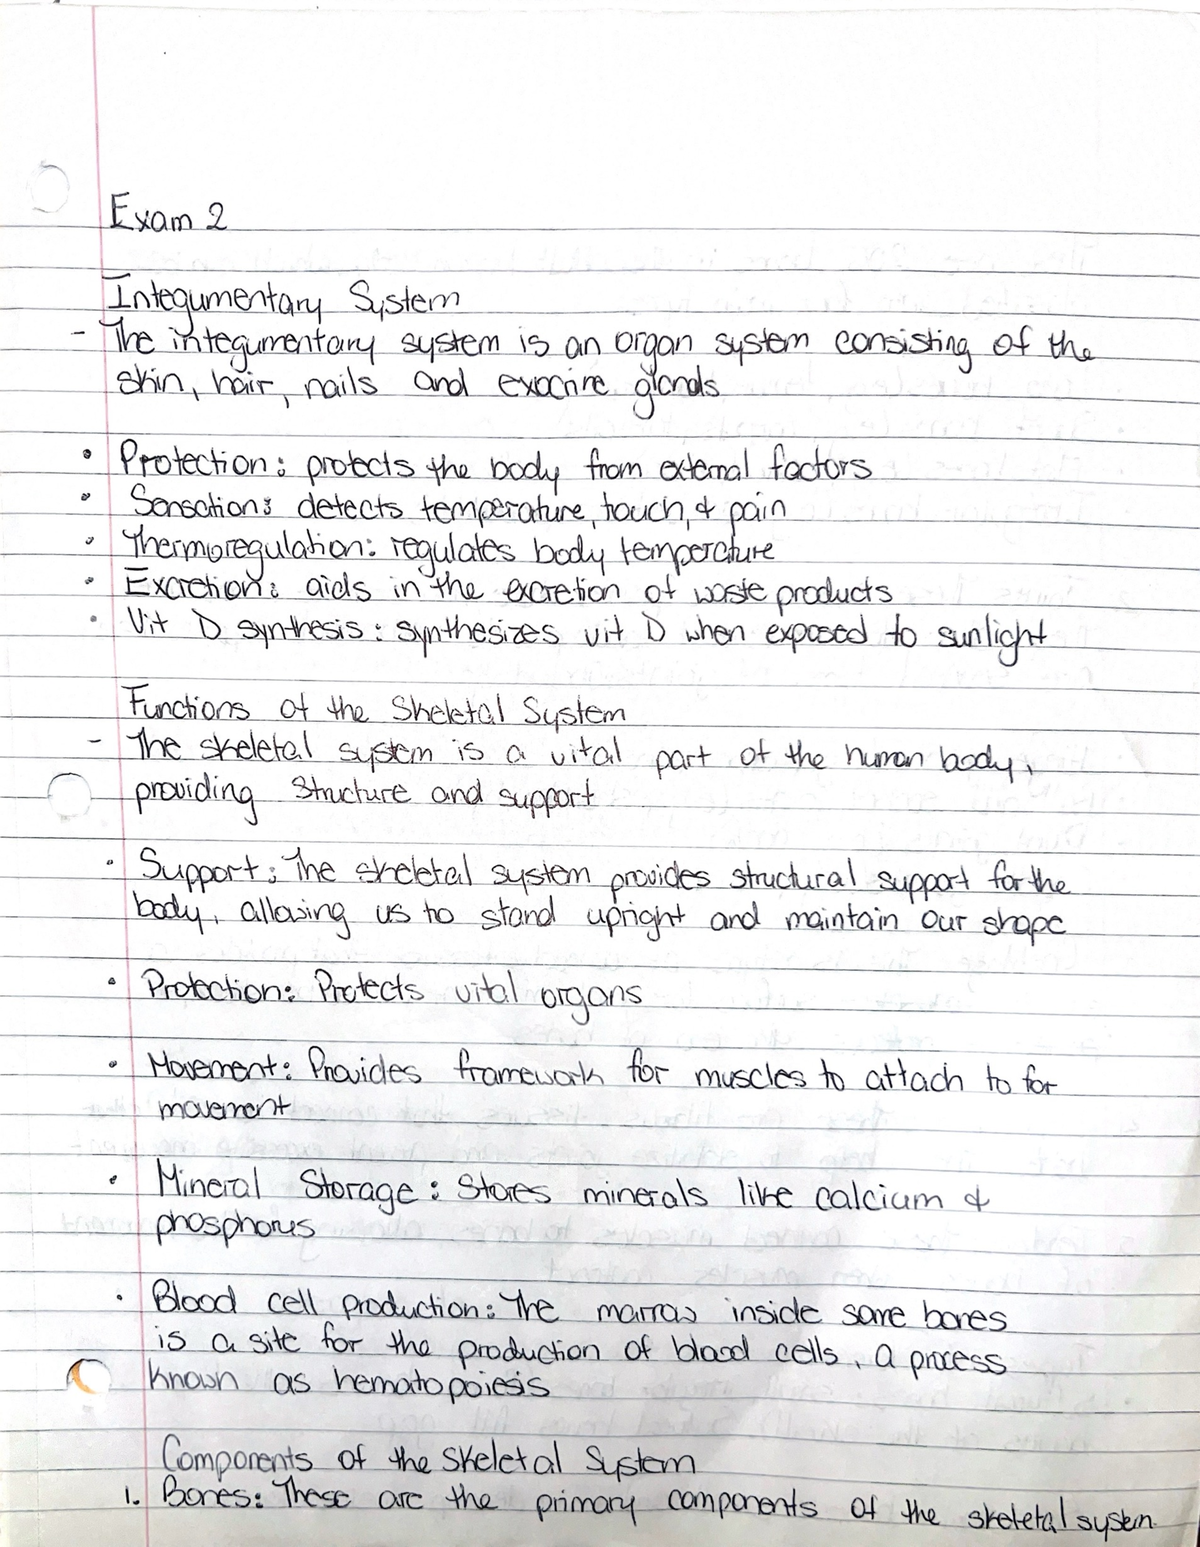 Exam 2
Integumentary System
- The integumentary system is an organ system consisting of the
skin, hair, nails and exocrine glands
• Protection: protects the body from external factors
• Sensation: detects temperature, touch, & pain
• Thermoregulation: regulates body temperature
• Excretion: aids in the excretion of waste products
• Vit D synthesis: synthesizes vit D when exposed to sunlight
Functions of the Skeletal System
- The skeletal system is a vital part of the human body,
providing structure and support
• Support: The skeletal system provides structural support for the
body, allowing us to stand upright and maintain our shape
• Protection: Protects vital organs
• Movement: Provides framework for muscles to attach to for
movement
• Mineral Storage: Stores minerals like calcium &
phosphorus
• Blood cell production: The marrow inside some bones
is a site for the production of blood cells, a process
known as hematopoiesis
Components of the Skeletal System
1. Bones: These are the primary components of the skeletal system